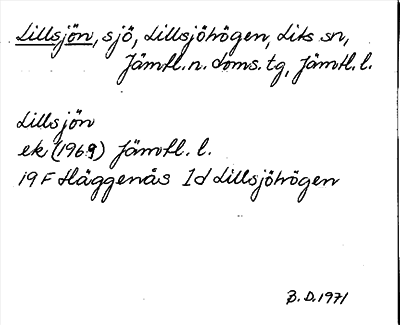 Lillsjön, sjö, Lillsjöhögen, Lits sn,
Jämtl. n. doms. tg, Jämtl. l.
Lillsjön
ek (1969) Jämtl. l.
19 F Häggenås 1d Lillsjöhögen
B. D. 1971